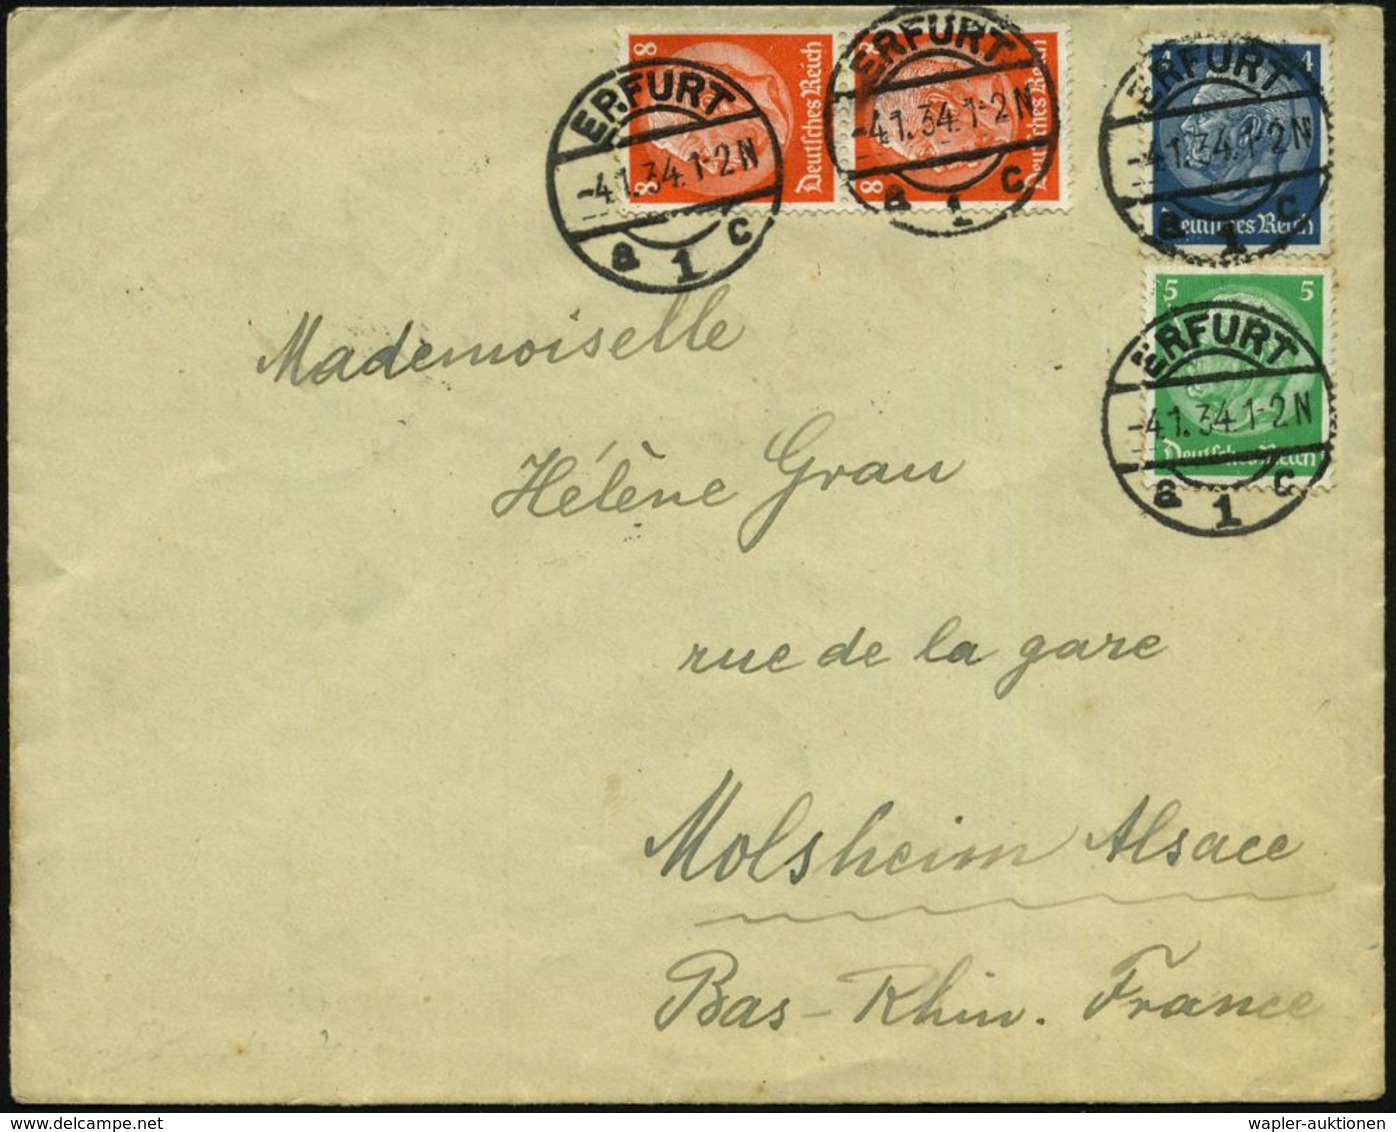 8 8 Deutsches Reich
8 Deutsches Reich
4 4
Deutsches Reich
5 5
Deutsches Reich
ERFURT
-4.1.34.1-2N
a 1 c
ERFURT
-4.1.34.1-2N
a 1 c
ERFURT
-4.1.34.1-2N
a 1 c
ERFURT
-4.1.34.1-2N
a 1 c
Mademoiselle
Hélène Grau
rue de la gare
Molsheim Alsace
Bas-Rhin. France
wapler-auktionen